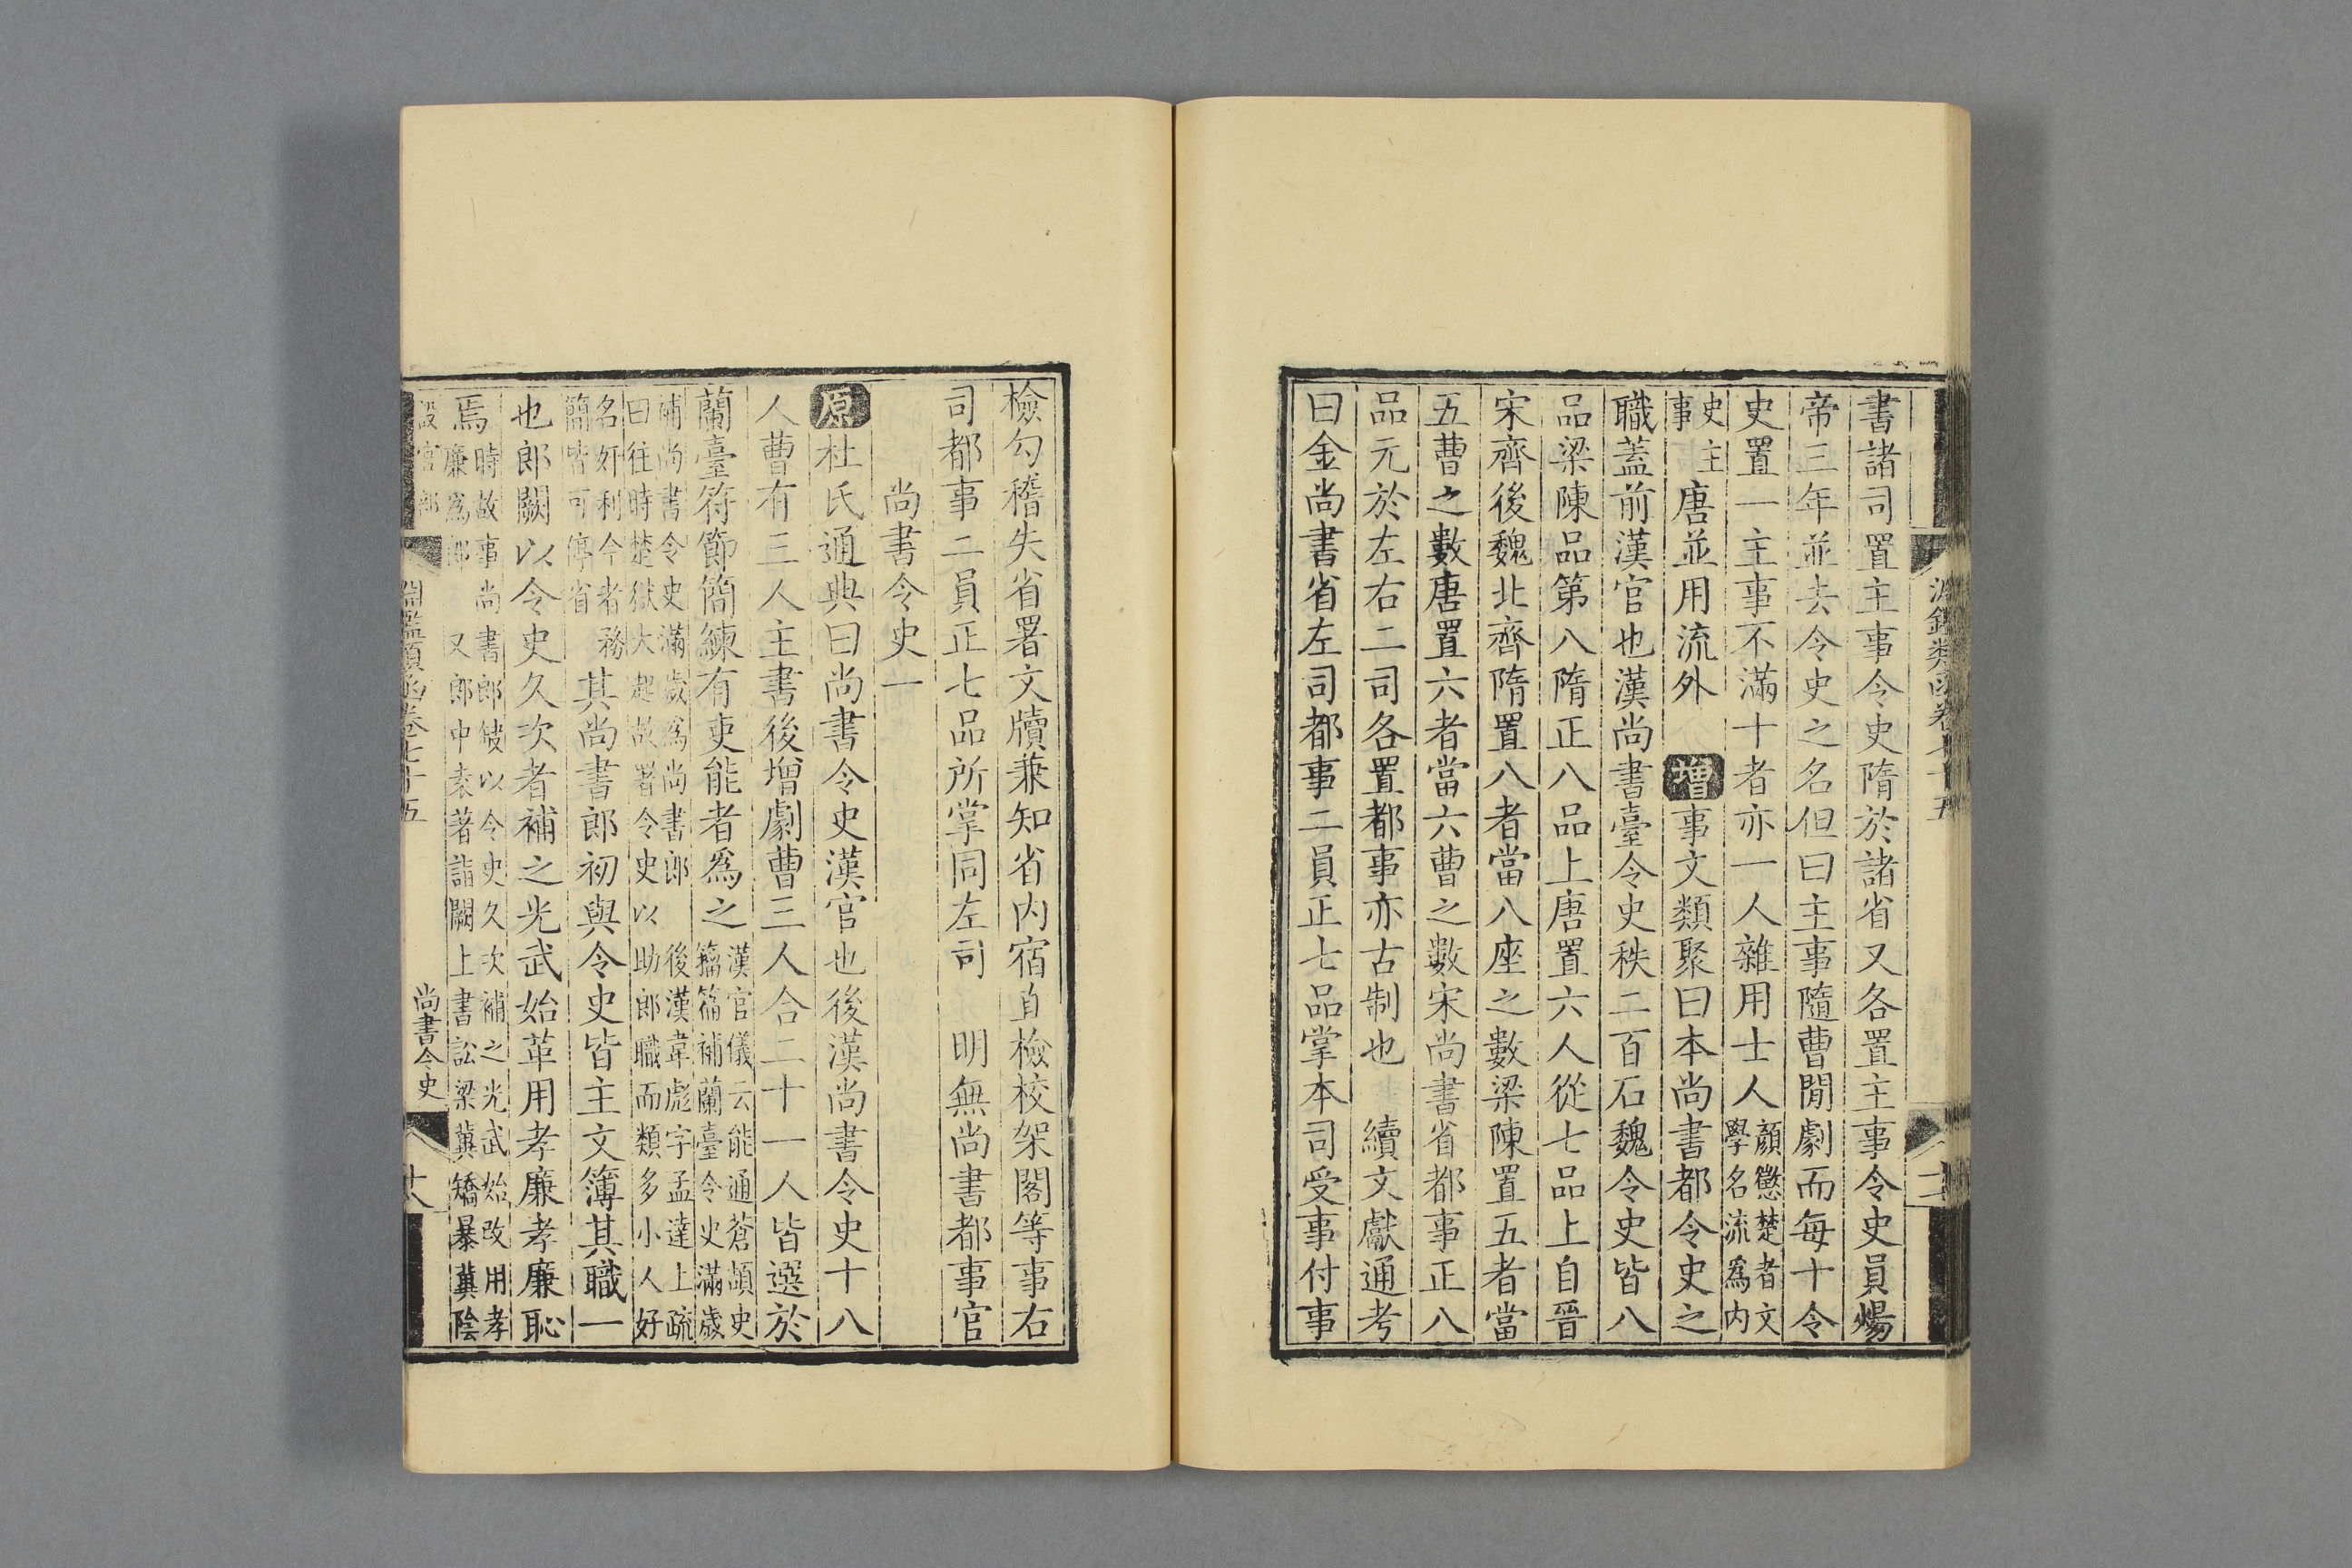 書諸司置主事令史隋於諸省又各置主事令史員煬
帝三年並去令史之名但曰主事隨曹閒劇而每十令
史置一主事不滿十者亦一人雜用士人顏愍楚者文
學名流爲内
史主
事
唐並用流外 增事文類聚曰本尚書都令史之
職蓋前漢官也漢尚書臺令史秩二百石魏令史皆八
品梁陳品第八隋正八品上唐置六人從七品上自晉
宋齊後魏北齊隋置八者當八座之數梁陳置五者當
五曹之數唐置六者當六曹之數宋尚書省都事正八
品元於左右二司各置都事亦古制也 續文獻通考
曰金尚書省左司都事二員正七品掌本司受事付事
檢勾稽失省署文牘兼知省内宿直檢校架閣等事右
司都事二員正七品所掌同左司 明無尚書都事官
尚書令史一
原杜氏通典曰尚書令史漢官也後漢尚書令史十八
人曹有三人主書後增劇曹三人合二十一人皆選於
蘭臺符節簡練有吏能者爲之漢官儀云能通蒼頡史
籀篇補蘭臺令史滿歲
補尚書令史滿歲爲尚書郎 後漢韋彪字孟達上疏
曰往時楚獄大起故署令史以助郎職而類多小人好
名奸利今者務
簡皆可停省
其尚書郎初與令史皆主文簿其職一
也郎闕以令史久次者補之光武始革用孝廉孝廉恥
焉時故事尚書郎缺以令史久次補之光武始改用孝
廉爲郎 又郎中袁著詣闕上書訟梁冀矯暴冀陰
尚書令史